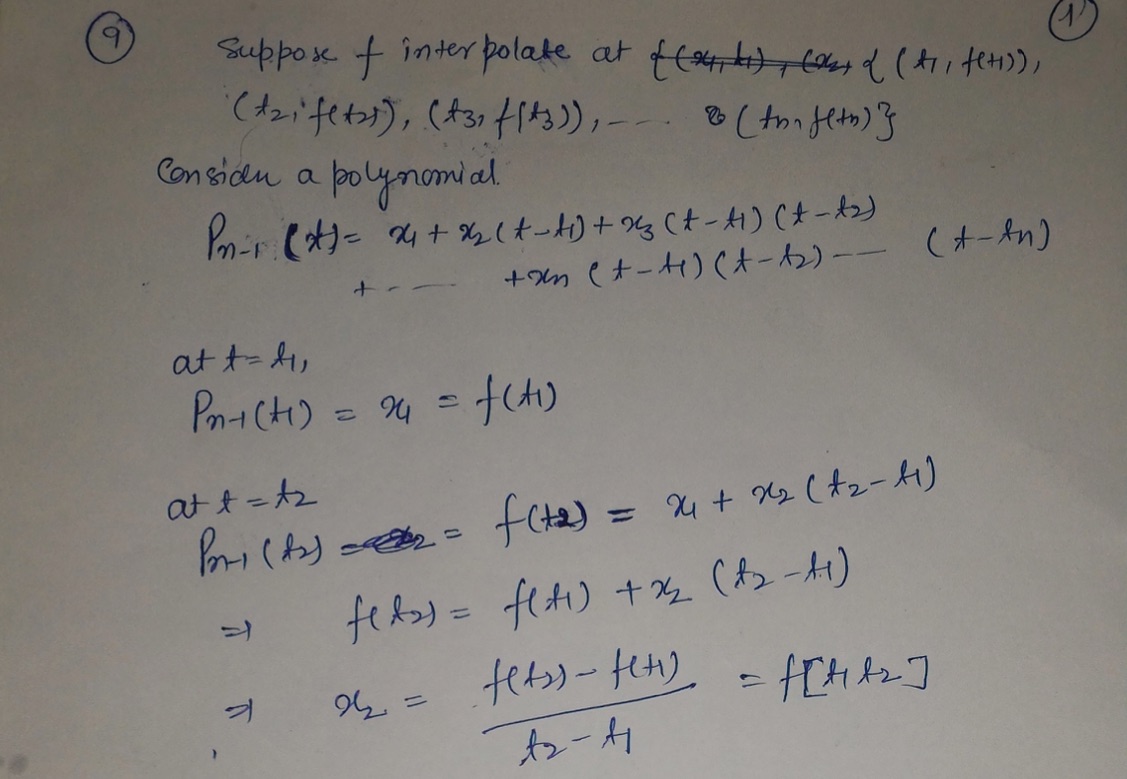 9 1
Suppose f interpolate at {(t₁, f(t₁)),
(t₂, f(t₂)), (t₃, f(t₃)), ---- (tn, f(tn)}
Consider a polynomial.
Pn-1 (t) = x₁ + x₂ (t-t₁) + x₃ (t-t₁) (t-t₂)
+ - - — + xn (t-t₁) (t-t₂) --- (t-tn)
at t = t₁,
Pn-1 (t₁) = x₁ = f(t₁)
at t = t₂
Pn-1 (t₂) = f(t₂) = x₁ + x₂ (t₂-t₁)
⇒ f(t₂) = f(t₁) + x₂ (t₂-t₁)
⇒ x₂ = f(t₂) - f(t₁) / t₂ - t₁ = f[t₁ t₂]